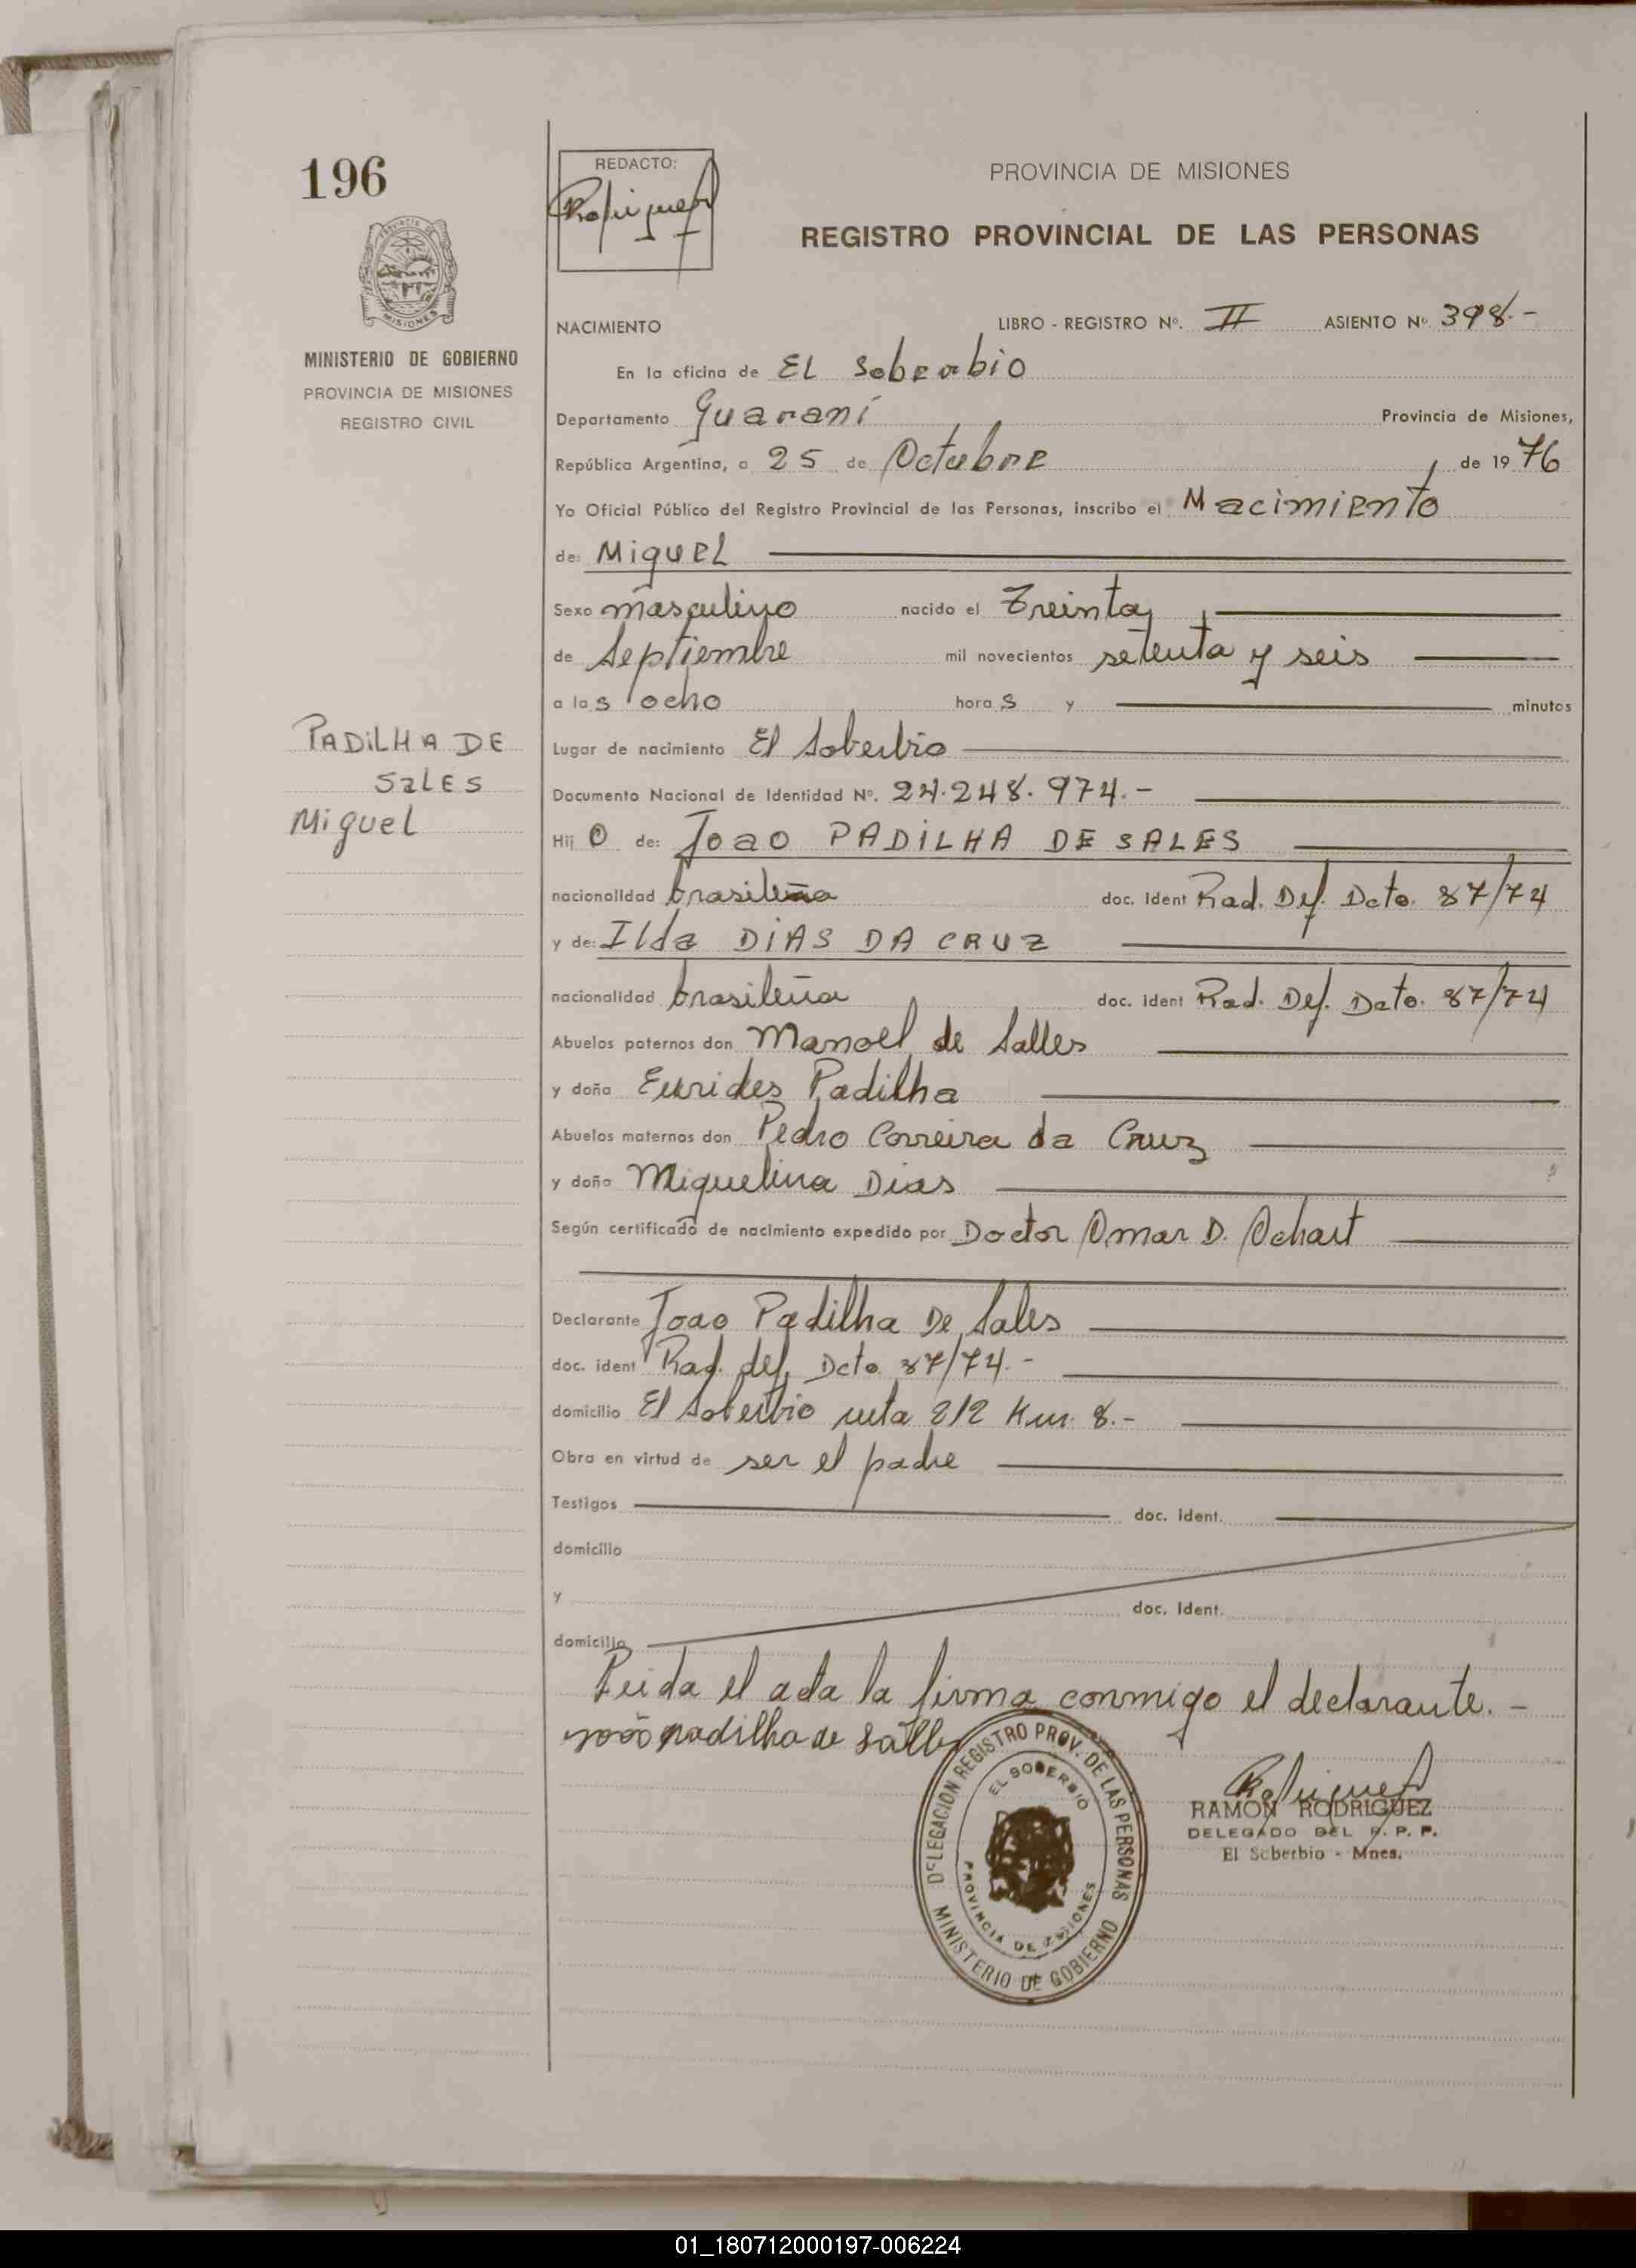 196
REDACTO:
Rodriguez
PROVINCIA DE MISIONES
REGISTRO PROVINCIAL DE LAS PERSONAS
MISIONES
MINISTERIO DE GOBIERNO
PROVINCIA DE MISIONES
REGISTRO CIVIL
NACIMIENTO LIBRO - REGISTRO Nº. II ASIENTO Nº 398.-
En la oficina de EL Soberbio
Departamento Guaraní Provincia de Misiones,
República Argentina, a 25 de Octubre de 1976
Yo Oficial Público del Registro Provincial de las Personas, inscribo el Nacimiento
de: Miguel
Sexo masculino nacido el Treinta
de Septiembre mil novecientos setenta y seis
a las ocho horas y minutos
PADILHA DE
SALES
Miguel
Lugar de nacimiento El Soberbio
Documento Nacional de Identidad Nº. 24.248.974.-
Hijo de: Joao PADILHA DE SALES
nacionalidad brasileña doc. Ident Rad. Def. Dcto. 87/74
y de: Ilda DIAS DA CRUZ
nacionalidad brasileña doc. Ident Rad. Def. Dcto. 87/74
Abuelos paternos don Manoel de Salles
y doña Eurides Padilha
Abuelos maternos don Pedro Correira da Cruz
y doña Miguelina Dias
Según certificado de nacimiento expedido por Doctor Omar D. Ochart
Declarante Joao Padilha De Sales
doc. ident Rad. def. Dcto. 87/74.-
domicilio El Soberbio ruta 212 Km. 8.-
Obra en virtud de ser el padre
Testigos doc. ident.
domicilio
y doc. Ident.
domicilio
Leida el acta la firma conmigo el declarante.-
joão padilha de Salles
DELEGACION REGISTRO PROV. DE LAS PERSONAS
EL SOBERBIO
PROVINCIA DE MISIONES
MINISTERIO DE GOBIERNO
Rodriguez
RAMON RODRIGUEZ
DELEGADO DEL R. P. P.
El Soberbio - Mnes.
01_180712000197-006224